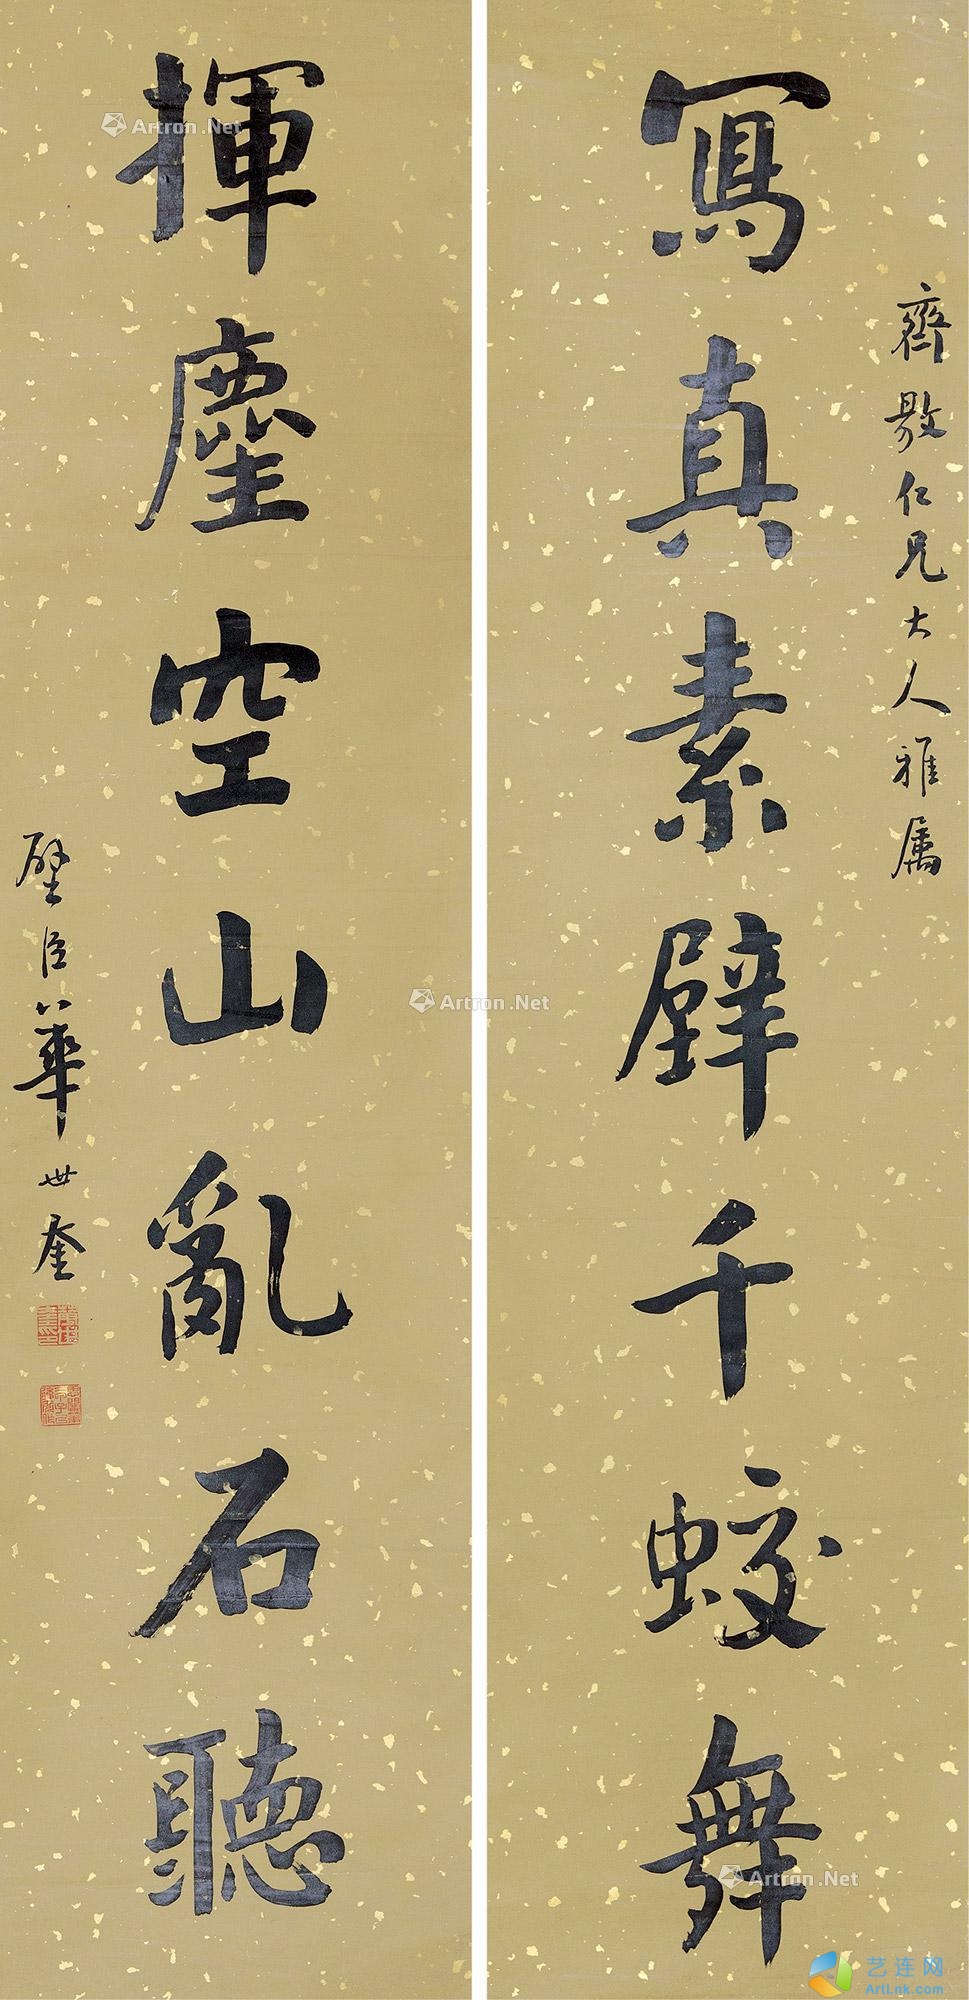 寫真素壁千蛟舞
齊敭仁兄大人雅属
揮麈空山亂石聽
璧臣華世奎
Artron.Net
Artron.Net
Artron.Net
艺连网
ArtLnk.com